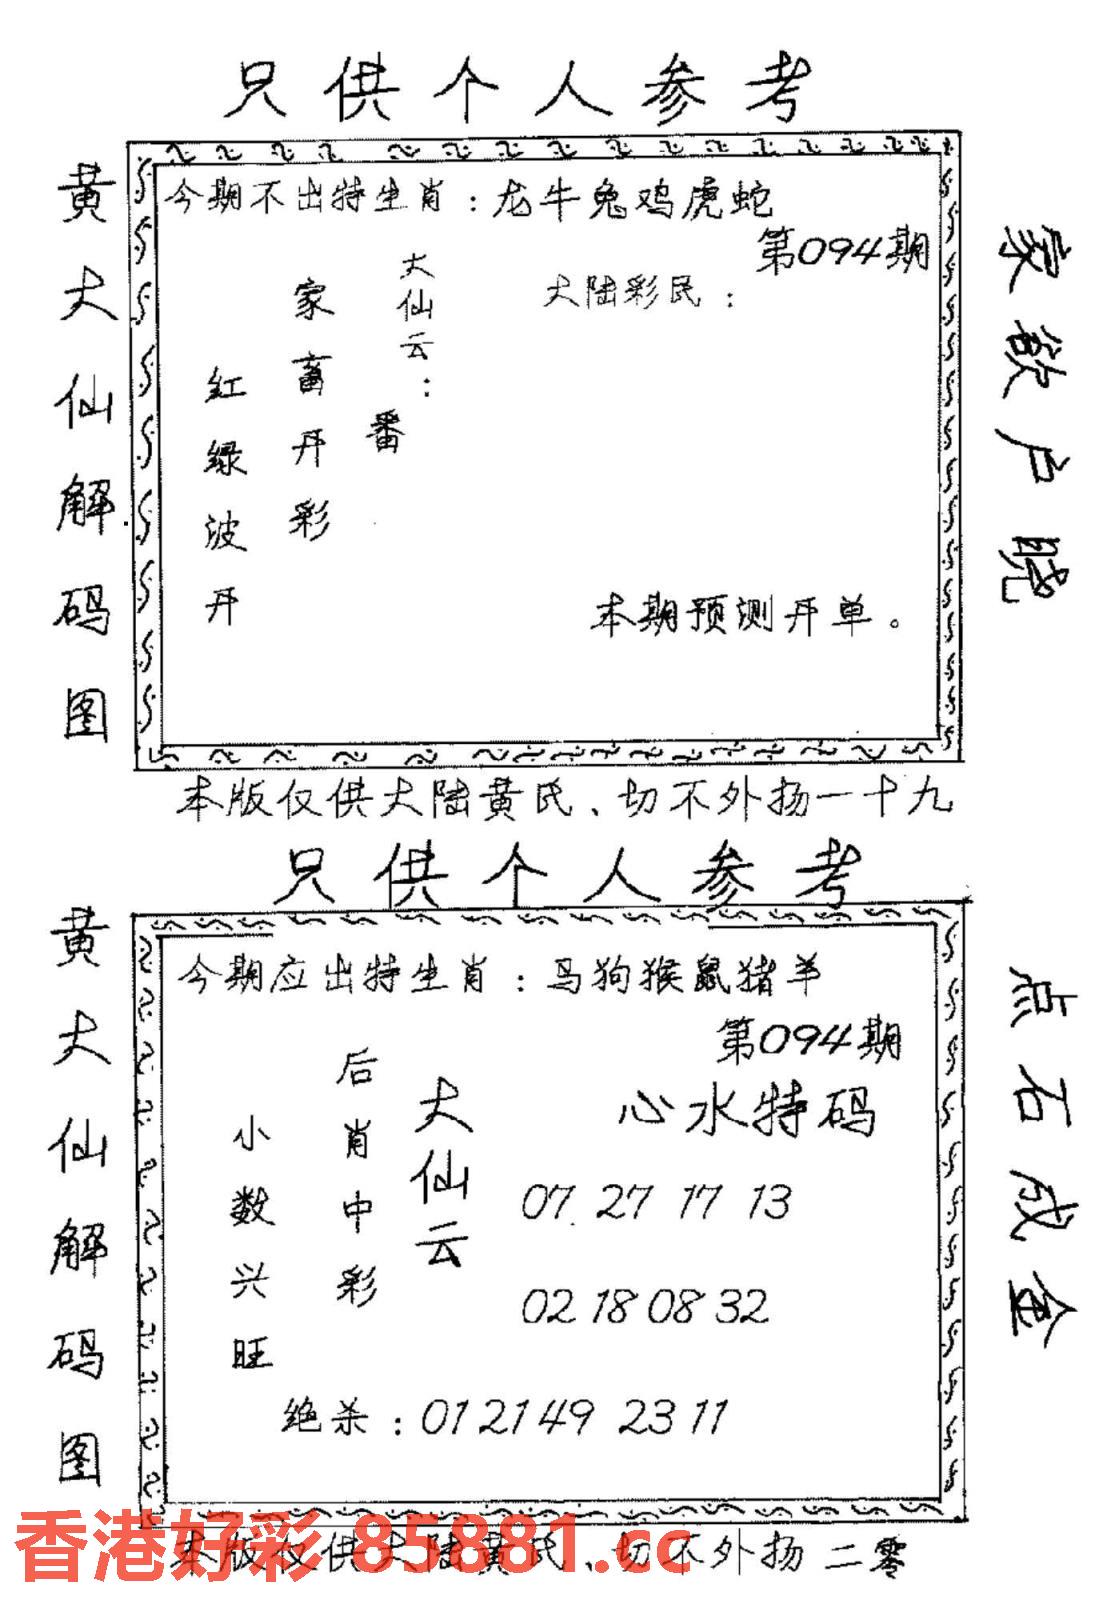 只供个人参考
黄大仙解码图
今期不出特生肖：龙牛兔鸡虎蛇
第094期
大陆彩民：
大仙云：
番
家畜开彩
红绿波开
本期预测开单。
家欲户晓
本版仅供大陆黄氏、切不外扬一十九
只供个人参考
黄大仙解码图
今期应出特生肖：马狗猴鼠猪羊
第094期
心水特码
大仙云
后肖中彩
小数兴旺
07 27 17 13
02 18 08 32
绝杀：01 21 49 23 11
点石成金
本版仅供大陆黄氏、切不外扬二零
香港好彩 85881.cc